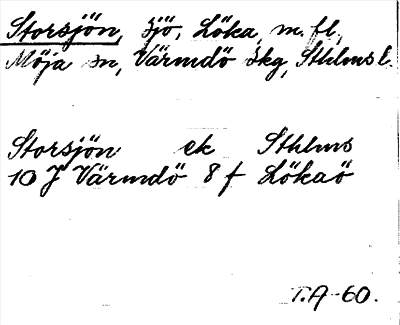 Storsjön, sjö, Löka, m. fl,
Möja sn, Värmdö skg, Sthlms l.
Storsjön ek Sthlms
10 J Värmdö 8 f Lökaö
T.A-60.